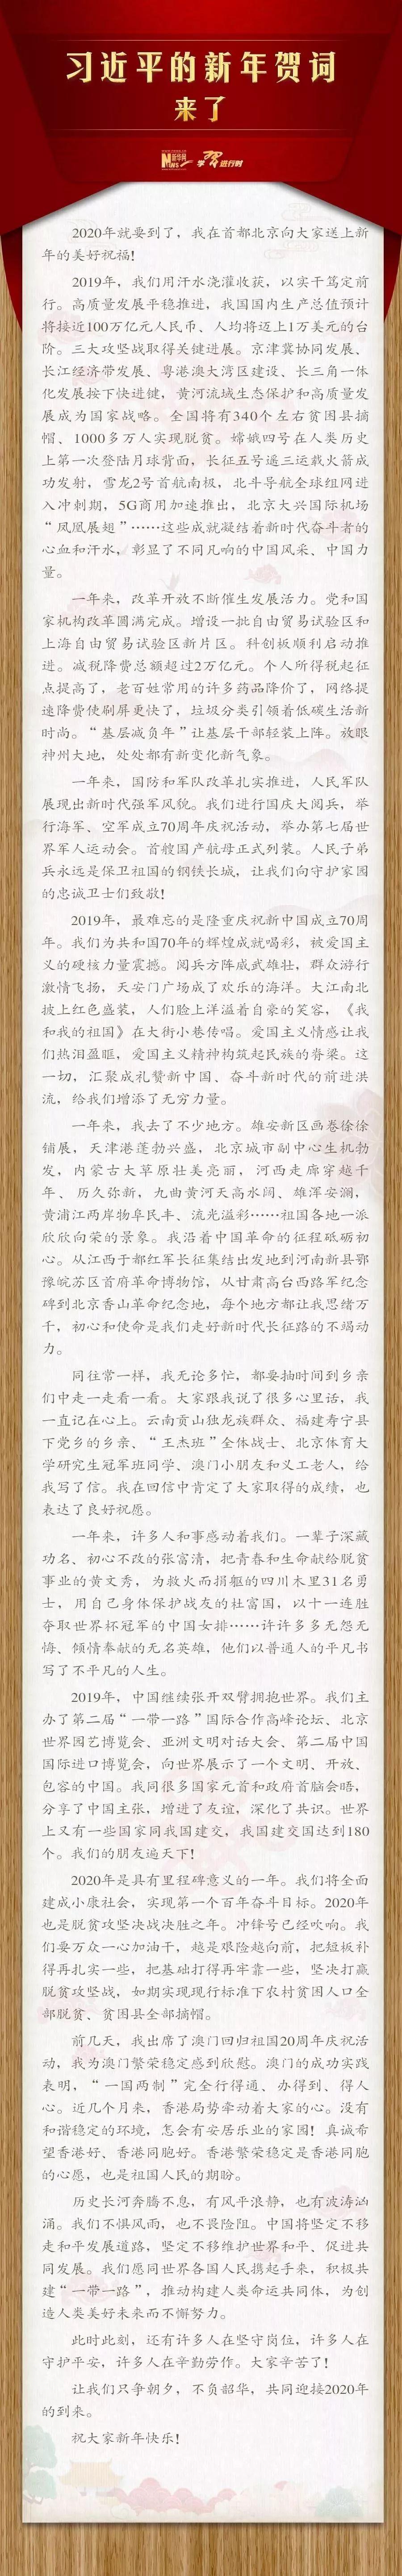 习近平的新年贺词
来了
新华网
NEWS
学习进行时
2020年就要到了，我在首都北京向大家送上新
年的美好祝福！
2019年，我们用汗水浇灌收获，以实干笃定前
行。高质量发展平稳推进，我国国内生产总值预计
将接近100万亿元人民币、人均将迈上1万美元的台
阶。三大攻坚战取得关键进展。京津冀协同发展、
长江经济带发展、粤港澳大湾区建设、长三角一体
化发展按下快进键，黄河流域生态保护和高质量发
展成为国家战略。全国将有340个左右贫困县摘
帽、1000多万人实现脱贫。嫦娥四号在人类历史
上第一次登陆月球背面，长征五号遥三运载火箭成
功发射，雪龙2号首航南极，北斗导航全球组网进
入冲刺期，5G商用加速推出，北京大兴国际机场
“凤凰展翅”……这些成就凝结着新时代奋斗者的
心血和汗水，彰显了不同凡响的中国风采、中国力
量。
一年来，改革开放不断催生发展活力。党和国
家机构改革圆满完成。增设一批自由贸易试验区和
上海自由贸易试验区新片区。科创板顺利启动推
进。减税降费总额超过2万亿元。个人所得税起征
点提高了，老百姓常用的许多药品降价了，网络提
速降费使刷屏更快了，垃圾分类引领着低碳生活新
时尚。“基层减负年”让基层干部轻装上阵。放眼
神州大地，处处都有新变化新气象。
一年来，国防和军队改革扎实推进，人民军队
展现出新时代强军风貌。我们进行国庆大阅兵，举
行海军、空军成立70周年庆祝活动，举办第七届世
界军人运动会。首艘国产航母正式列装。人民子弟
兵永远是保卫祖国的钢铁长城，让我们向守护家园
的忠诚卫士们致敬！
2019年，最难忘的是隆重庆祝新中国成立70周
年。我们为共和国70年的辉煌成就喝彩，被爱国主
义的硬核力量震撼。阅兵方阵威武雄壮，群众游行
激情飞扬，天安门广场成了欢乐的海洋。大江南北
披上红色盛装，人们脸上洋溢着自豪的笑容，《我
和我的祖国》在大街小巷传唱。爱国主义情感让我
们热泪盈眶，爱国主义精神构筑起民族的脊梁。这
一切，汇聚成礼赞新中国、奋斗新时代的前进洪
流，给我们增添了无穷力量。
一年来，我去了不少地方。雄安新区画卷徐徐
铺展，天津港蓬勃兴盛，北京城市副中心生机勃
发，内蒙古大草原壮美亮丽，河西走廊穿越千
年、历久弥新，九曲黄河天高水阔、雄浑安澜，
黄浦江两岸物阜民丰、流光溢彩……祖国各地一派
欣欣向荣的景象。我沿着中国革命的征程砥砺初
心。从江西于都红军长征集结出发地到河南新县鄂
豫皖苏区首府革命博物馆，从甘肃高台西路军纪念
碑到北京香山革命纪念地，每个地方都让我思绪万
千，初心和使命是我们走好新时代长征路的不竭动
力。
同往常一样，我无论多忙，都要抽时间到乡亲
们中走一走看一看。大家跟我说了很多心里话，我
一直记在心上。云南贡山独龙族群众、福建寿宁县
下党乡的乡亲、“王杰班”全体战士、北京体育大
学研究生冠军班同学、澳门小朋友和义工老人，给
我写了信。我在回信中肯定了大家取得的成绩，也
表达了良好祝愿。
一年来，许多人和事感动着我们。一辈子深藏
功名、初心不改的张富清，把青春和生命献给脱贫
事业的黄文秀，为救火而捐躯的四川木里31名勇
士，用自己身体保护战友的杜富国，以十一连胜
夺取世界杯冠军的中国女排……许许多多无怨无
悔、倾情奉献的无名英雄，他们以普通人的平凡书
写了不平凡的人生。
2019年，中国继续张开双臂拥抱世界。我们主
办了第二届“一带一路”国际合作高峰论坛、北京
世界园艺博览会、亚洲文明对话大会、第二届中国
国际进口博览会，向世界展示了一个文明、开放、
包容的中国。我同很多国家元首和政府首脑会晤，
分享了中国主张，增进了友谊，深化了共识。世界
上又有一些国家同我国建交，我国建交国达到180
个。我们的朋友遍天下！
2020年是具有里程碑意义的一年。我们将全面
建成小康社会，实现第一个百年奋斗目标。2020年
也是脱贫攻坚决战决胜之年。冲锋号已经吹响。我
们要万众一心加油干，越是艰险越向前，把短板补
得再扎实一些，把基础打得再牢靠一些，坚决打赢
脱贫攻坚战，如期实现现行标准下农村贫困人口全
部脱贫、贫困县全部摘帽。
前几天，我出席了澳门回归祖国20周年庆祝活
动，我为澳门繁荣稳定感到欣慰。澳门的成功实践
表明，“一国两制”完全行得通、办得到、得人
心。近几个月来，香港局势牵动着大家的心。没有
和谐稳定的环境，怎会有安居乐业的家园！真诚希
望香港好、香港同胞好。香港繁荣稳定是香港同胞
的心愿，也是祖国人民的期盼。
历史长河奔腾不息，有风平浪静，也有波涛汹
涌。我们不惧风雨，也不畏险阻。中国将坚定不移
走和平发展道路，坚定不移维护世界和平、促进共
同发展。我们愿同世界各国人民携起手来，积极共
建“一带一路”，推动构建人类命运共同体，为创
造人类美好未来而不懈努力。
此时此刻，还有许多人在坚守岗位，许多人在
守护平安，许多人在辛勤劳作。大家辛苦了！
让我们只争朝夕，不负韶华，共同迎接2020年
的到来。
祝大家新年快乐！